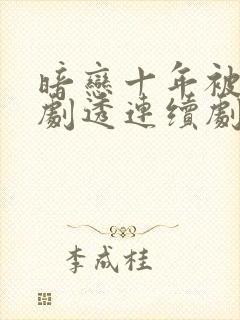 暗戀十年被
劇透連續劇
李成桂